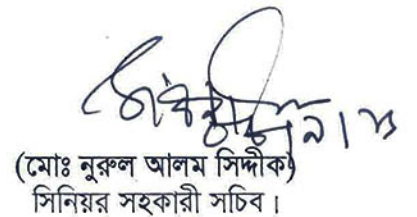 (মোঃ নুরুল আলম সিদ্দীক)
সিনিয়র সহকারী সচিব।